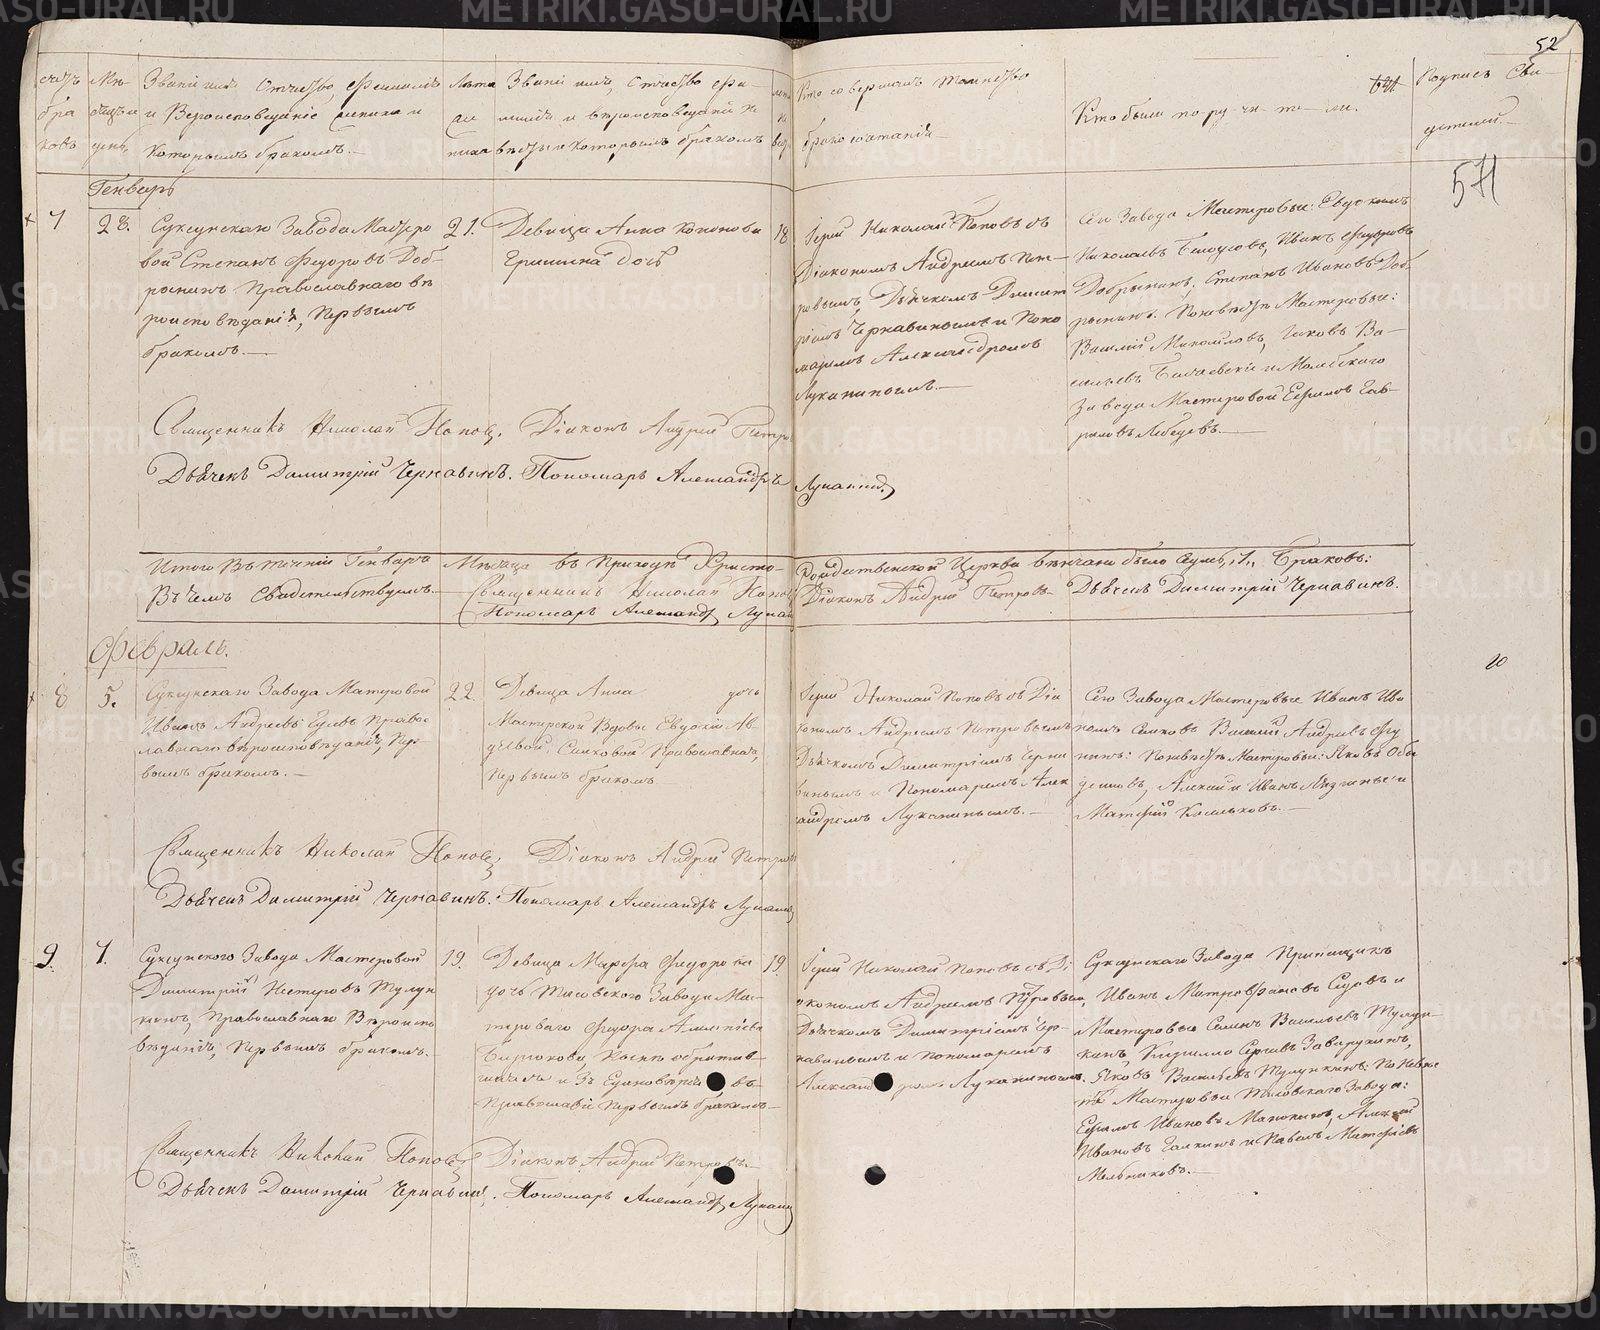 52
счетъ
бра
ковъ
Мѣ
сяцъ и
день
Званіе имя Отчество, Фамилія
и Вѣроисповѣданіе жениха и
которымъ бракомъ.
Лѣта
же
ниха
Званіе имя, Отчество фа-
милія и вѣроисповѣданіе не
вѣсты и которымъ бракомъ
Кто совершалъ таинство
бракосочетанія
Кто были поручители.
Подпись Сви-
дѣтелей.
571
Генварь
7
28.
Суксунскаго Завода Мастеро
вой Степанъ Федоровъ Доб-
рынинъ Православнаго вѣ
роисповѣданія, первымъ
бракомъ.
21.
Девица Анна Кононова
Гришина дочь
18
Іерей Николай Поповъ съ
Діакономъ Андреемъ Пет-
ровымъ, Дьячкомъ Димит
ріемъ Чернавинымъ и Поно
маремъ Александромъ
Луканинымъ.
Сего Завода Мастеровые: Евдокимъ
Николаевъ Белоусовъ, Иванъ Федоровъ
Добрынинъ, Степанъ Ивановъ Доб-
рынинъ. По невѣстѣ Мастеровые:
Василій Михайловъ, Яковъ Ва-
сильевъ и Молебскаго
Завода Мастеровой Ефимъ Гав-
риловъ Лебедевъ.
Священникъ Николай Поповъ. Діаконъ Андрей Петро
Дьячекъ Димитрій Чернавинъ. Пономарь Александръ Луканинъ
Итого въ теченіи Генваря Мѣсяца въ Приходѣ Христо-
рождественской Церкви вѣнчано было семь, 7., Браковъ:
Въ чемъ Свидетельствуемъ. Священникъ Николай Попов
Діаконъ Андрей Петровъ Дьячекъ Димитрій Чернавинъ.
Пономарь Александръ Лукан
Февраль.
8
5.
Суксунскаго Завода Мастеровой
Иванъ Андреевъ Правос
лавнаго вѣроисповѣданія, Пер-
вымъ бракомъ.
22
Девица Анна дочь
Мастерской Вдовы Евдокіи Ав-
деевой, Православная,
первымъ бракомъ
Іерей Николай Поповъ съ Діа
кономъ Андреемъ Петровымъ
Дьячкомъ Димитріемъ Черна
винымъ и Пономаремъ Алек
сандромъ Луканинымъ.
Сего Завода Мастеровые Иванъ Ива
Василій Андреевъ
По невѣстѣ Мастеровые: Яковъ
Алексей и Иванъ и
Матфій
Священникъ Николай Поповъ, Діаконъ Андрей Петров
Дьячекъ Димитрій Чернавинъ. Пономарь Александръ Лукани
9.
7.
Суксунскаго Завода Мастеровой
Димитрій Нестеровъ Тулун
кинъ, Православнаго Вѣроиспо
вѣданія, Первымъ бракомъ.
19.
Девица Марфа Федорова
дочь Тисовскаго Завода Мас-
тероваго Федора Алексѣева
Бирюкова, обратив
шаяся изъ Единовѣрія въ
Православіе Первымъ бракомъ
19
Іерей Николай Поповъ съ Ді
акономъ Андреемъ Петровымъ,
Дьячкомъ Димитріемъ Чер-
навинымъ и пономаремъ
Александромъ Луканинымъ.
Суксунскаго Завода Прикащикъ
Иванъ Митрофановъ и
Мастеровые Семенъ Васильевъ Тулун-
кинъ, Кирилло Сергѣевъ Заварухинъ,
Яковъ Васильевъ Тулункинъ: По Невес
тѣ Мастеровые Тисовскаго Завода:
Ефимъ Ивановъ Алексей
Ивановъ Галкинъ и Павелъ Матфіевъ
Мельниковъ.
Священникъ Николай Поповъ Діаконъ Андрей Петровъ.
Дьячекъ Димитрій Чернавинъ. Пономарь Александръ Лукани
METRIKI.GASO-URAL.RU